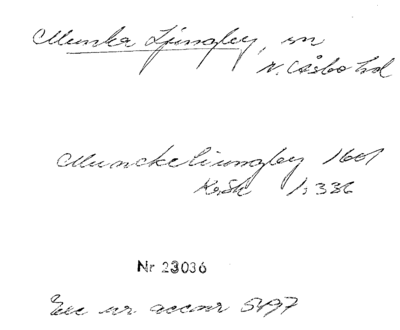 Munka Ljungby, sn
N. Åsbo hd
Munckeliungby 1601
KrSk 1:336
Nr 23036
Exc ur accnr 5497